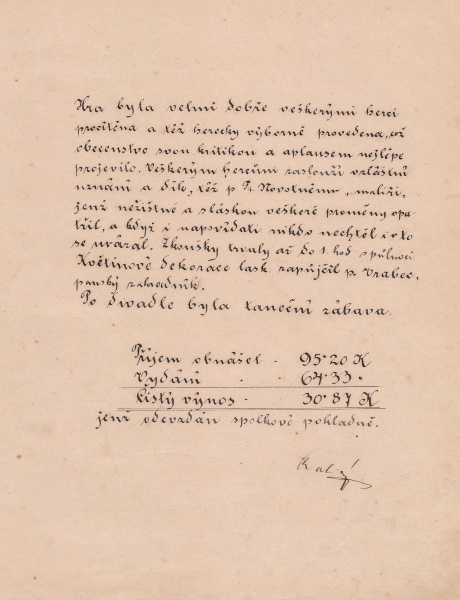 Hra byla velmi dobře veškerými herci
procítěna a též herecky výborně provedena, což
obecenstvo svou kritikou a aplausem nejlépe
projevilo. Veškerým hercům zaslouží vzláštní
uznání a dík, též p. Fr. Novotnému, malíři,
jenž nezištně a s láskou veškeré proměny opa-
třil, a když i napovídati nikdo nechtěl i
se uvázal. Zkoušky trvaly až do 1 hod s půlnoci
Květinové dekorace lask. zapůjčil p. Vrabec,
panský zahradník.
Po divadle byla taneční zábava.
Příjem obnášel . 95·20 K
Vydání . . 64·33 .
Čistý výnos . 30·87 K
jenž odevzdán spolkové pokladně.